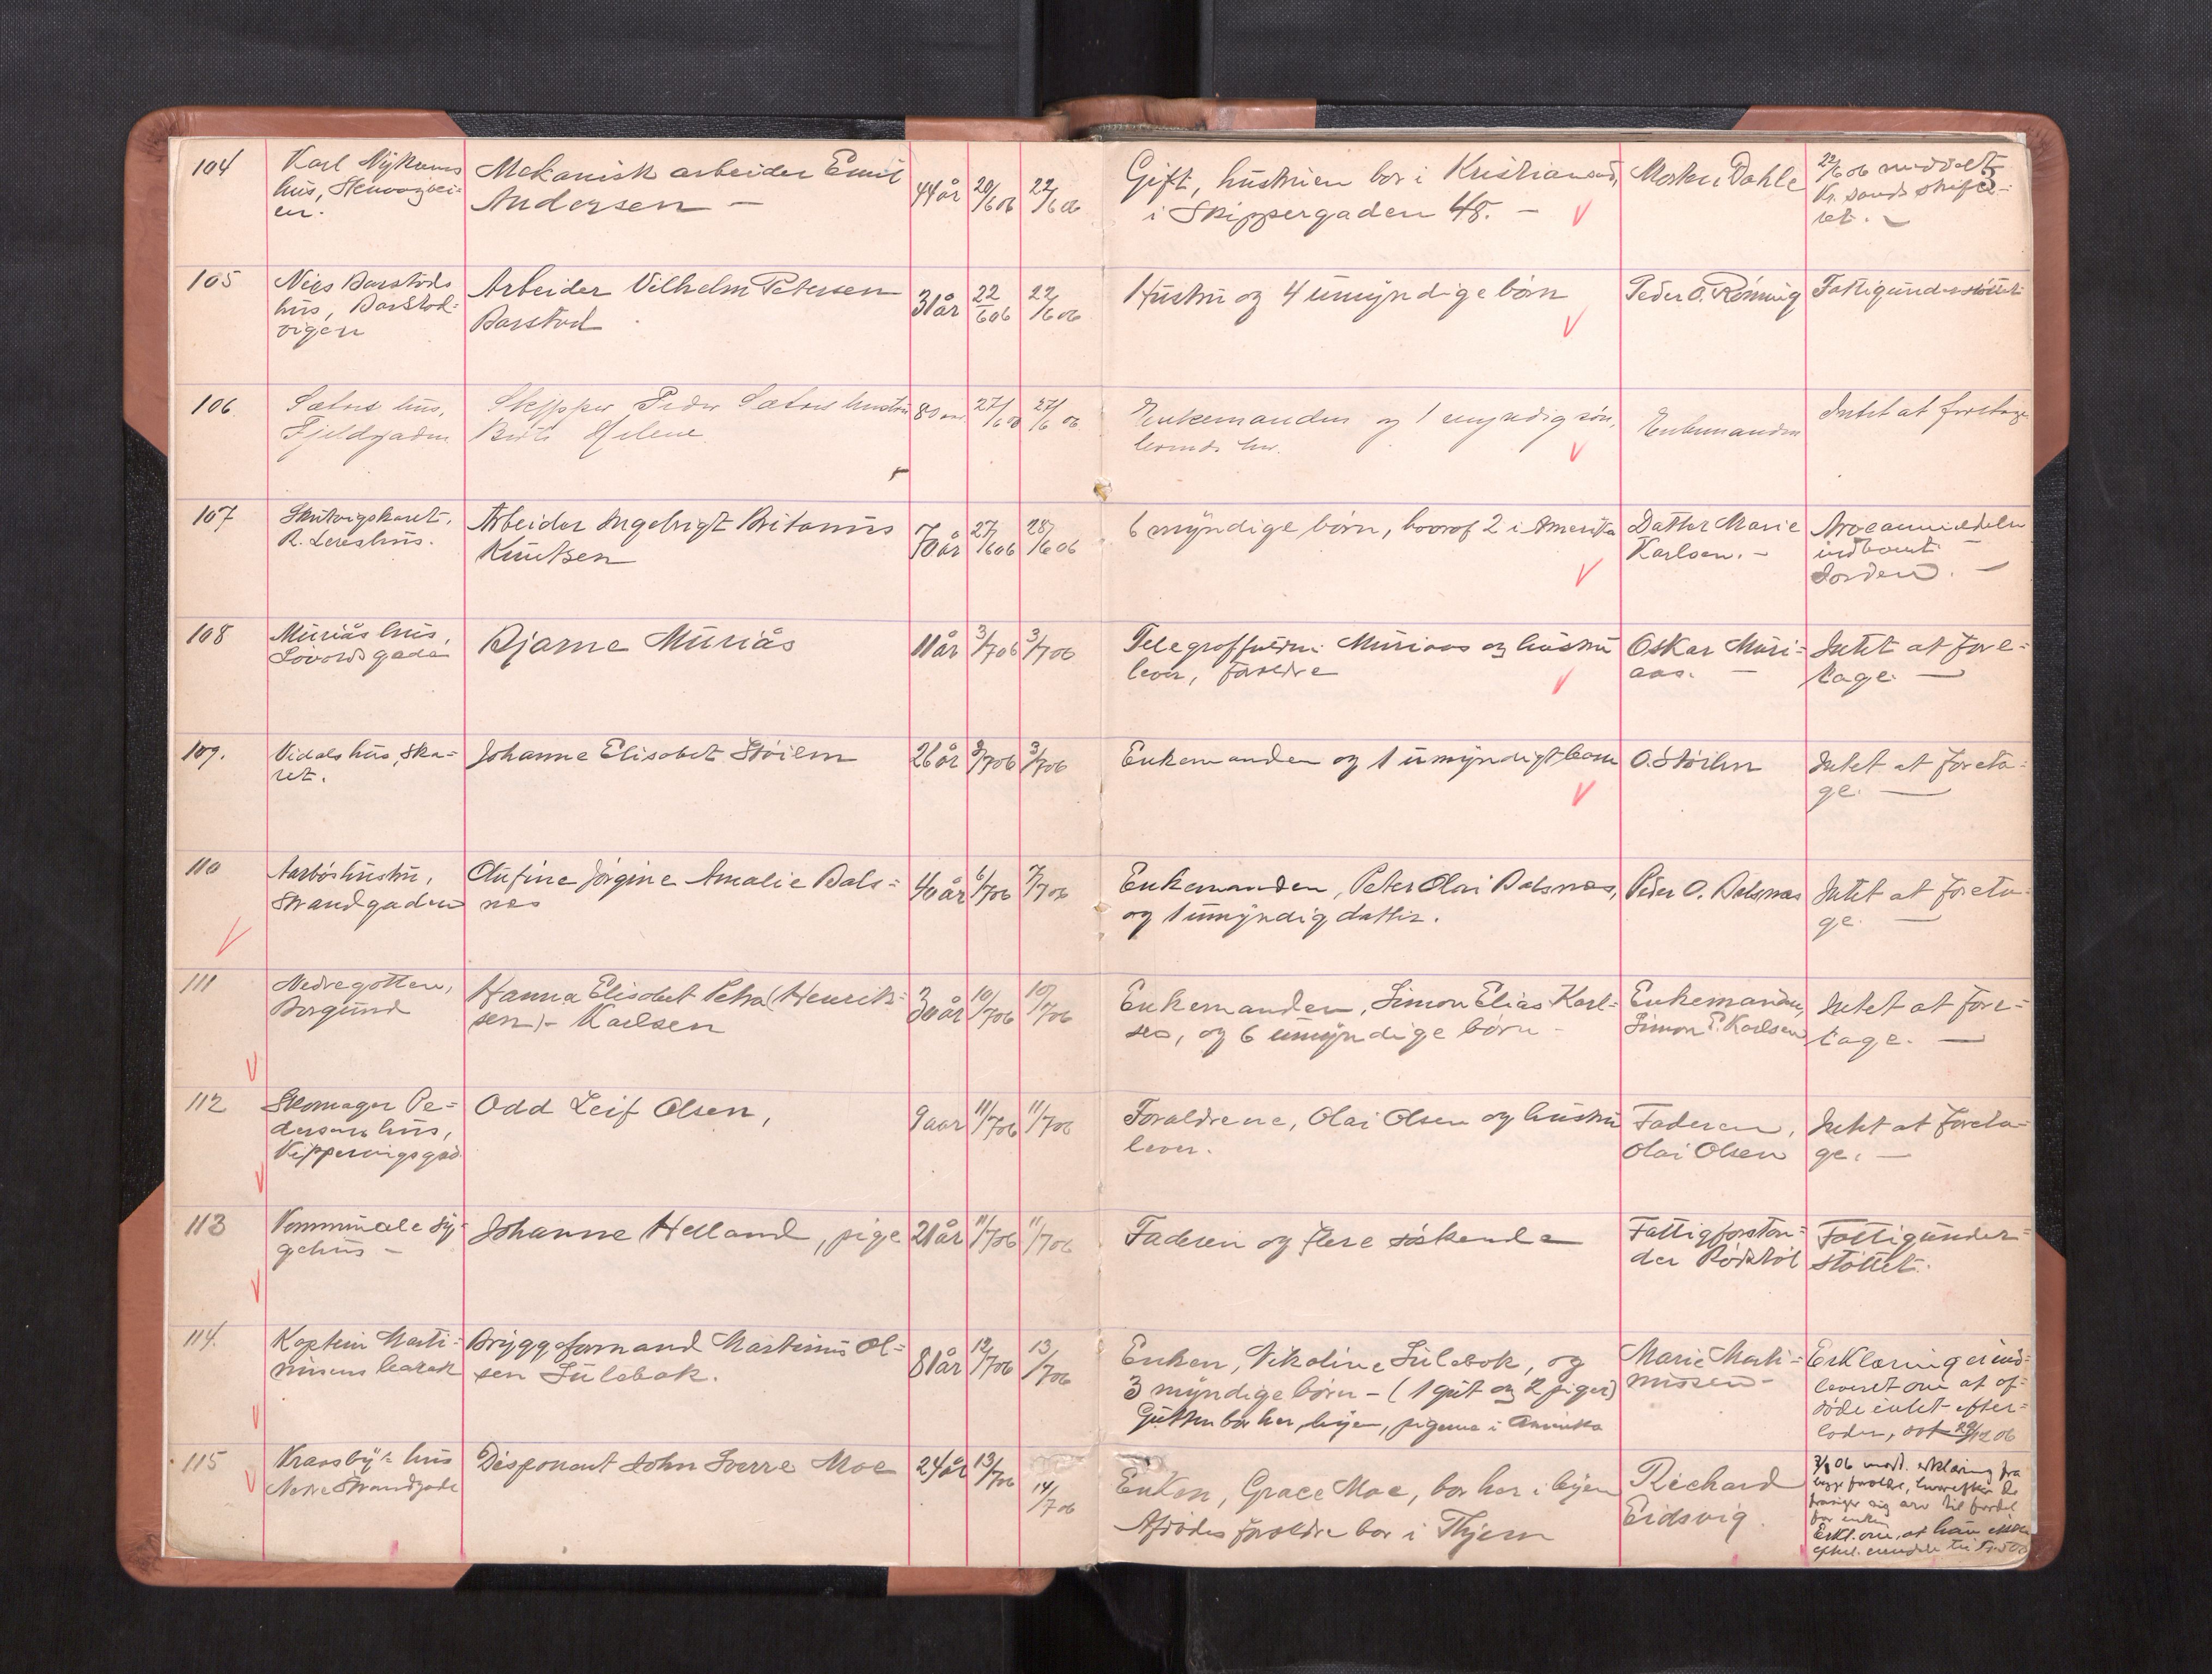 104
Karl Nykrems
hus,
en.
Mekanisk arbeider Emil
Andersen —
44 år
20/6 06
22/6 06
Gift, hustruen bor i Kristiansund,
i Skippergaden 48. —
Morten Dahle
22/6 06 meddelt
Kr. sunds skifte-
ret. —
105
Nils Barstads
hus, Barstad-
vigen
Arbeider Vilhelm Petersen
Barstad
31 år
22/6 06
22/6 06
Hustru og 4 umyndige børn
Peder O. Rønning
Fattigunderstöttet
106
Sætres hus,
Fjeldgaden
Skipper Peder Sætres hustru
Helene
80 aar
27/6 06
27/6 06
Enkemanden og 1 myndig søn,
boende her.
Enkemanden
Intet at foretage
107
Skutvigskaret,
Arbeider Ingebrigt Britanus
Knutsen
70 år
27/6 06
28/6 06
6 myndige børn, hvoraf 2 i Amerika
Datter Marie
Karlsen. —
108
Muriås hus,
Løvolds gade
Bjarne Muriås
11 år
3/7 06
3/7 06
Muriaas og hustru
lever, forældre
Oskar Muri-
aas. —
Intet at fore-
tage. —
109.
Vidals hus, Ska-
ret.
Johanne Elisabet Støilen
26 år
3/7 06
3/7 06
Enkemanden og 1 umyndigt barn
O. Støilen
Intet at foreta-
ge. —
110
Strandgaden
Olufine Jørgine Amalie Dals-
nes
40 år
6/7 06
7/7 06
Enkemanden, Peter Olai Dalsnes,
og 1 umyndig datter.
Peder O. Dalsnes
Intet at foreta-
ge. —
111
Nedregotten,
Borgund
Hanna Elisabet Petra (Henrik-
sen) - Karlsen
30 år
10/7 06
10/7 06
Enkemanden, Simon Elias Karl-
sen, og 6 umyndige børn —
Enkemanden,
Simon E. Karlsen
Intet at fore-
tage. —
112
Skomager Pe-
dersens hus,
Kipperviksgad
Odd Leif Olsen,
9 aar
11/7 06
11/7 06
Forældrene, Olai Olsen og hustru
lever.
Faderen,
Olai Olsen
Intet at foreta-
ge. —
113
Kommunale sy-
gehus —
Johanne Helland, pige
21 år
11/7 06
11/7 06
Faderen og flere søskende
Fattigforstan-
der Rødstøl
Fattigunder-
støttet.
114.
Kaptein Marti-
nussens barak
Bryggeformand Martinus Ol-
sen Sulebak.
81 år
12/7 06
13/7 06
Enken, Nikoline Sulebak, og
3 myndige børn - (1 gut og 2 piger)
Gutten bor her i byen, pigerne i Amerika
Marie Marti-
nussen —
Erklæring er ind-
leveret om at af-
døde intet efter-
lader, 29/12 06
115
Kravsby's hus
Nedre Strandgade
Disponent John Sverre Moe
24 år
13/7 06
14/7 06
Enken, Grace Moe, bor her i byen
Afdødes forældre bor i Thjem
Richard
Eidsvig.
7/8 06 modt. erklæring fra
begge forældre, hvorefter de
frasiger sig arv til fordel
for enken